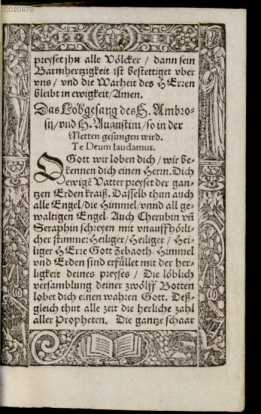 preyset jhn alle Völcker / dann sein
Barmhertzigkeit ist bestettiget vber
vns / vnd die Warheit des HErren
bleibt in ewigkeit / Amen.
Das Lobgesang des H. Ambro-
sij / vnd H. Augustini / so in der
Metten gesungen wird.
Te Deum laudamus.
O Gott wir loben dich / wir be-
kennen dich einen Herrn. Dich
ewigē Vatter preyset der gan-
tzen Erden kraiß. Dasselb thun auch
alle Engel / die Himmel / vnnd all ge-
waltigen Engel. Auch Cherubin vn̄
Seraphin schreyen mit vnauffhörli-
cher stimme: Heiliger / Heiliger / Hei-
liger HErr Gott Zebaoth. Himmel
vnd Erden sind erfüllet mit der her-
ligkeit deines preyses / Die löblich
versamblung deiner zwölff Botten
lobet dich einen wahren Gott. Deß-
gleich thut alle zeit die herliche zahl
aller Propheten. Die gantze schaar